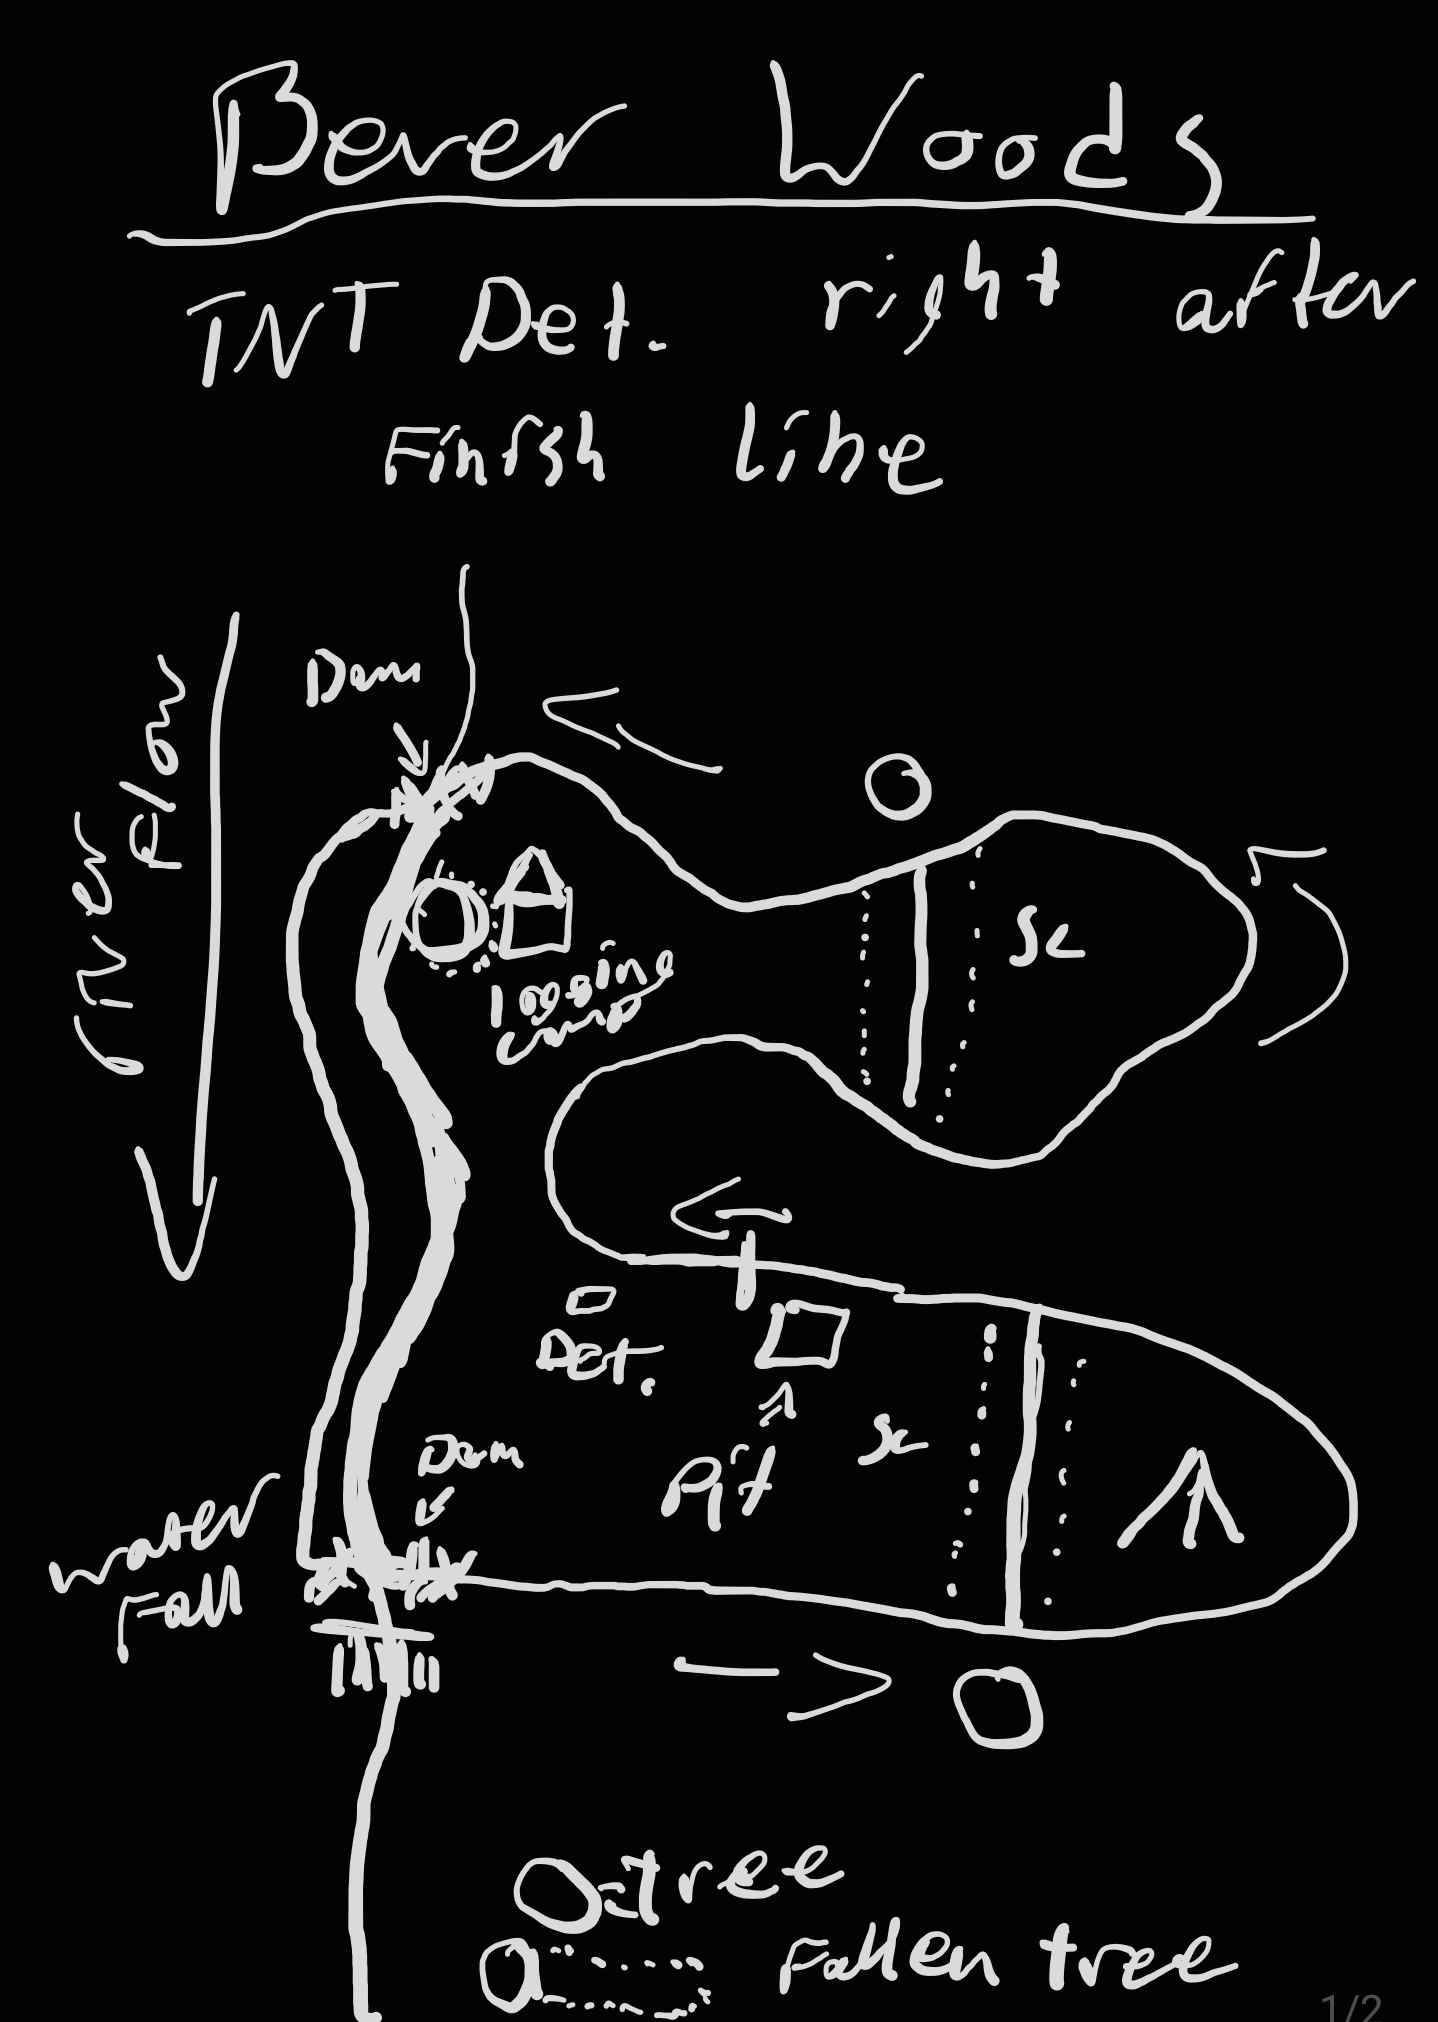 Bever Woods
TNT Det. right after
Finish line
Dam
River Flow
Sc
logging
camp
Det.
Dam
Pit
Sc
water
Fall
O=tree
Fallen tree
1/2